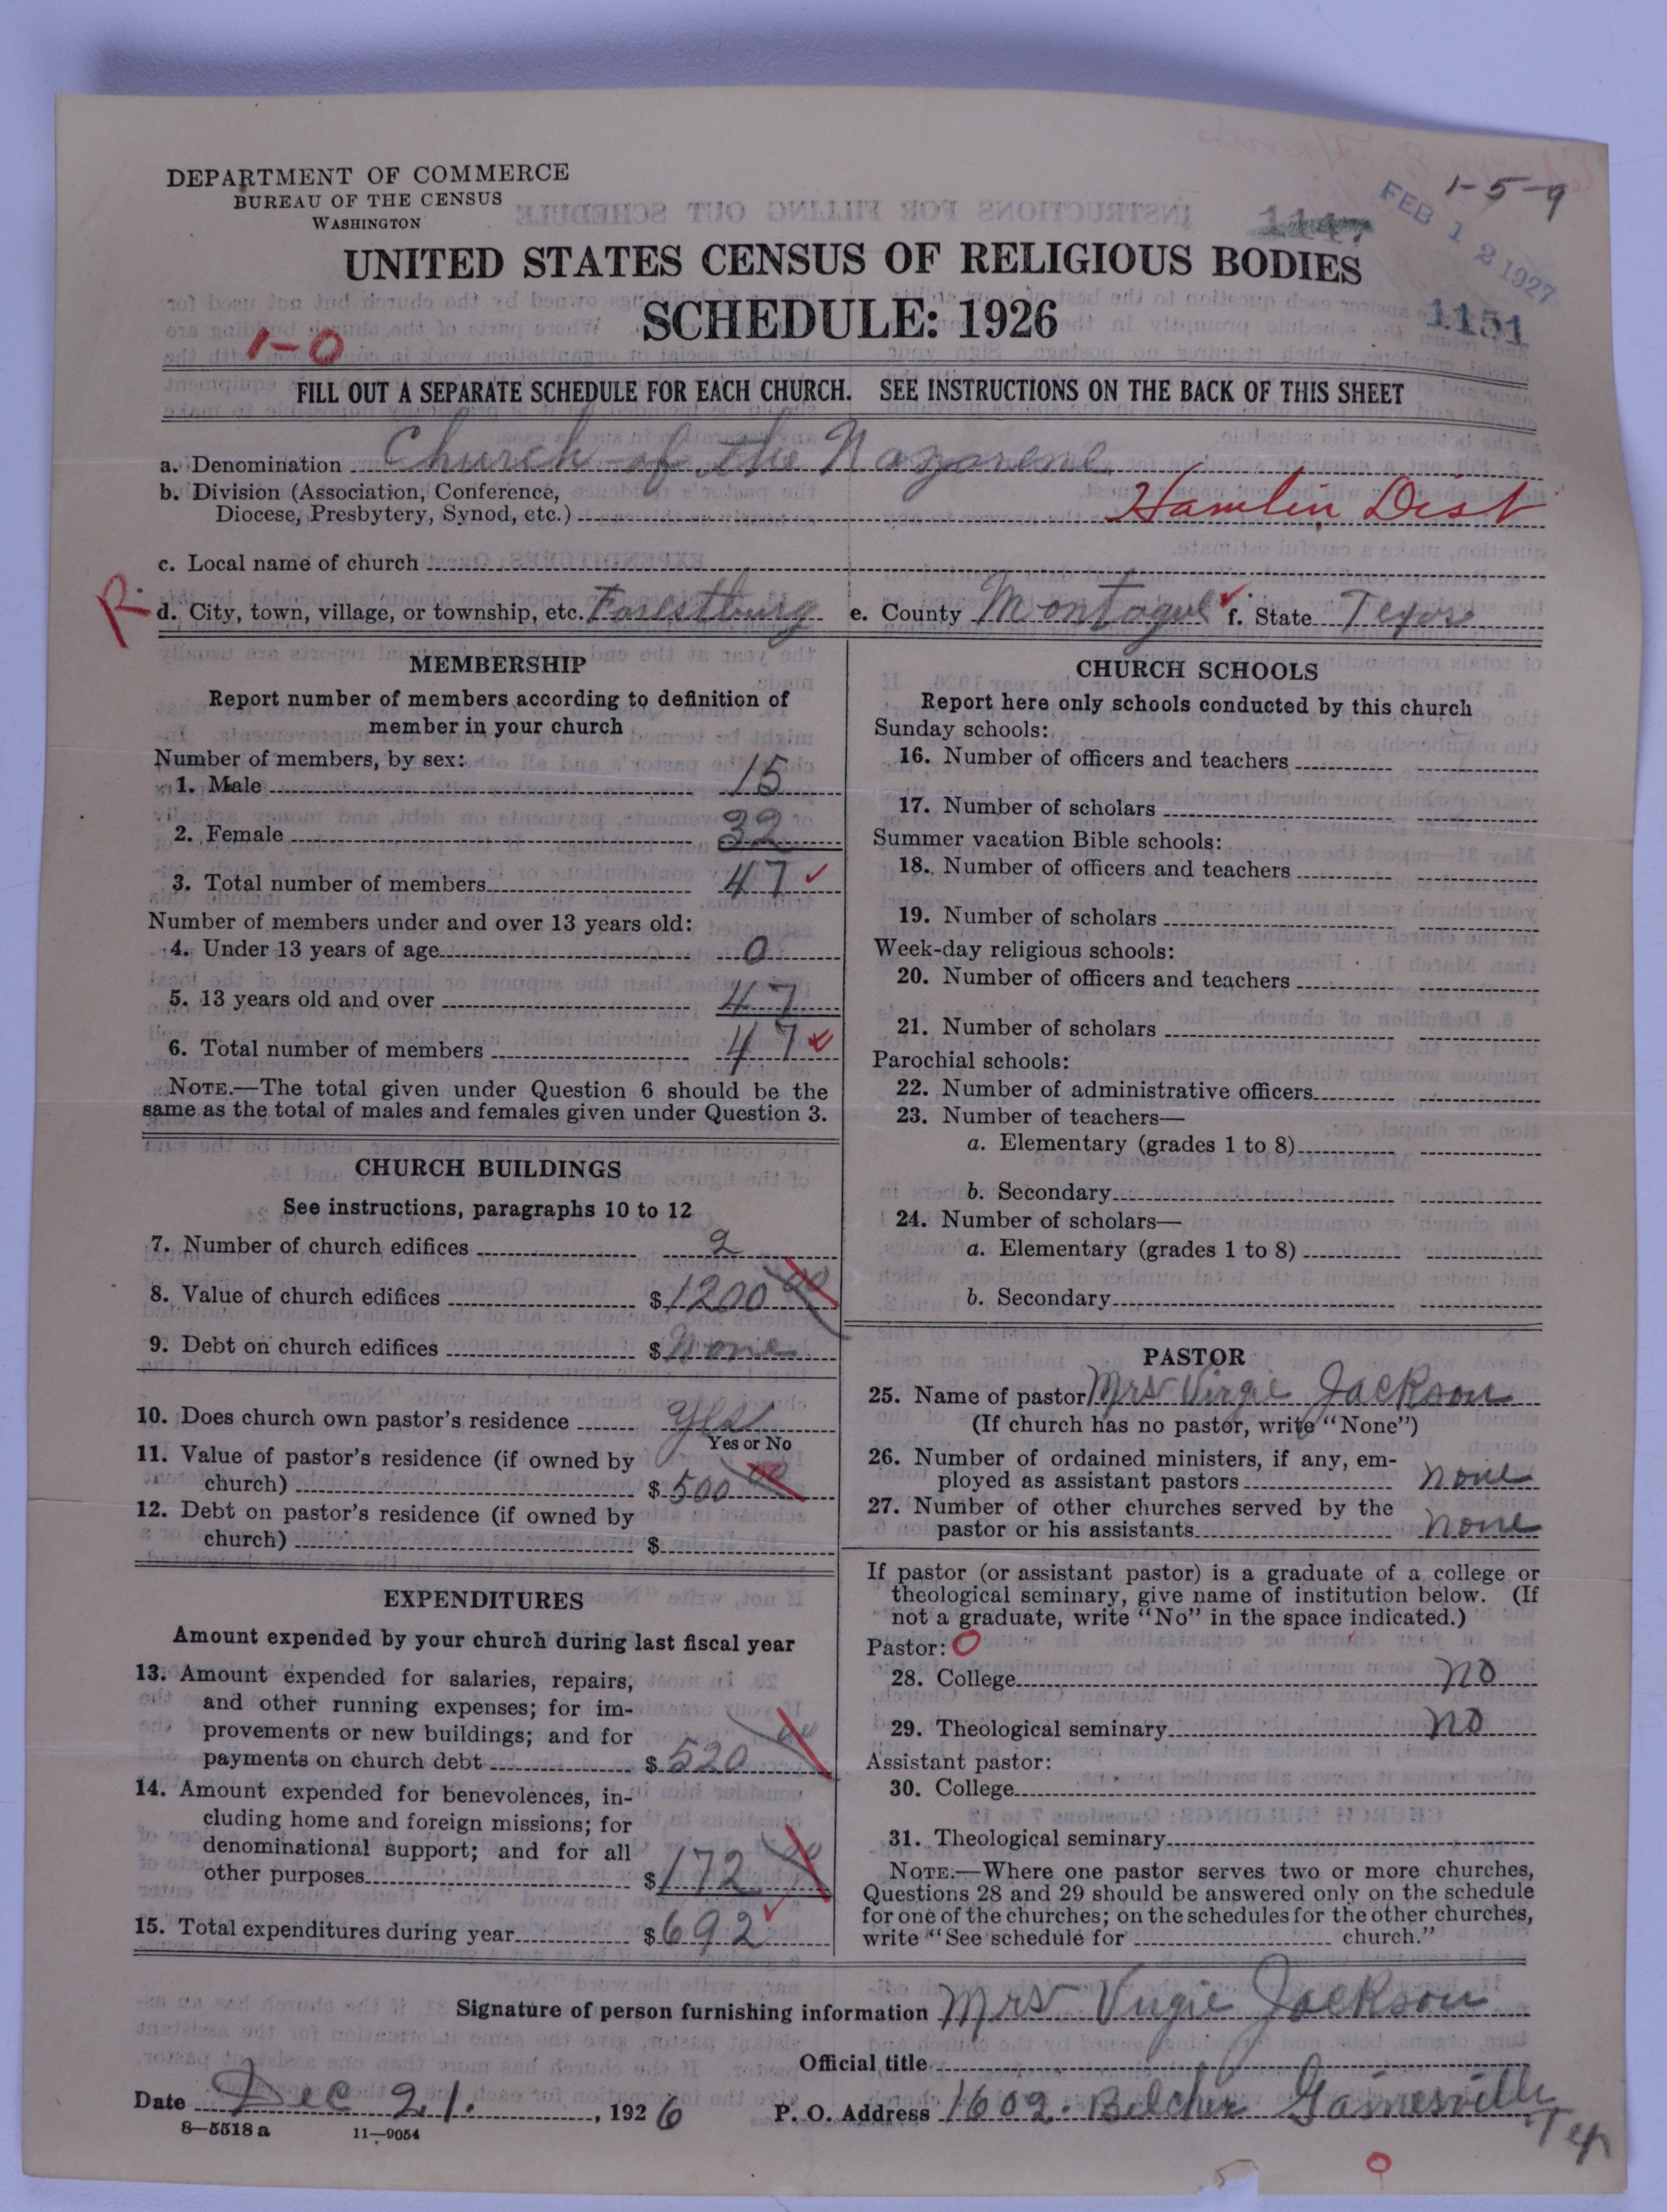 DEPARTMENT OF COMMERCE
BUREAU OF THE CENSUS
WASHINGTON
1-5-9
FEB 12 1927
UNITED STATES CENSUS OF RELIGIOUS BODIES
SCHEDULE: 1926
1151
1-0
FILL OUT A SEPARATE SCHEDULE FOR EACH CHURCH. SEE INSTRUCTIONS ON THE BACK OF THIS SHEET
a. Denomination Church of the Nazarene
b. Division (Association, Conference,
Diocese, Presbytery, Synod, etc.) Hamlin Dist
c. Local name of church
R. d. City, town, village, or township, etc. Forestburg e. County Montague f. State Texas
MEMBERSHIP
Report number of members according to definition of
member in your church
Number of members, by sex:
1. Male 15
2. Female 32
3. Total number of members 47
Number of members under and over 13 years old:
4. Under 13 years of age 0
5. 13 years old and over 47
6. Total number of members 47
NOTE.—The total given under Question 6 should be the
same as the total of males and females given under Question 3.
CHURCH BUILDINGS
See instructions, paragraphs 10 to 12
7. Number of church edifices 2
8. Value of church edifices $1200 00
9. Debt on church edifices $None
10. Does church own pastor's residence yes
Yes or No
11. Value of pastor's residence (if owned by
church) $500 00
12. Debt on pastor's residence (if owned by
church) $
EXPENDITURES
Amount expended by your church during last fiscal year
13. Amount expended for salaries, repairs,
and other running expenses; for im-
provements or new buildings; and for
payments on church debt $520 00
14. Amount expended for benevolences, in-
cluding home and foreign missions; for
denominational support; and for all
other purposes $172 00
15. Total expenditures during year $692
CHURCH SCHOOLS
Report here only schools conducted by this church
Sunday schools:
16. Number of officers and teachers
17. Number of scholars
Summer vacation Bible schools:
18. Number of officers and teachers
19. Number of scholars
Week-day religious schools:
20. Number of officers and teachers
21. Number of scholars
Parochial schools:
22. Number of administrative officers
23. Number of teachers—
a. Elementary (grades 1 to 8)
b. Secondary
24. Number of scholars—
a. Elementary (grades 1 to 8)
b. Secondary
PASTOR
25. Name of pastor Mrs Virgie Jackson
(If church has no pastor, write "None")
26. Number of ordained ministers, if any, em-
ployed as assistant pastors none
27. Number of other churches served by the
pastor or his assistants none
If pastor (or assistant pastor) is a graduate of a college or
theological seminary, give name of institution below. (If
not a graduate, write "No" in the space indicated.)
Pastor: 0
28. College no
29. Theological seminary no
Assistant pastor:
30. College
31. Theological seminary
NOTE.—Where one pastor serves two or more churches,
Questions 28 and 29 should be answered only on the schedule
for one of the churches; on the schedules for the other churches,
write "See schedule for church."
Signature of person furnishing information Mrs Virgie Jackson
Official title
Date Dec 21. , 1926 P. O. Address 1602. Belcher Gainesville
Tex
8—5518a 11—9054
0